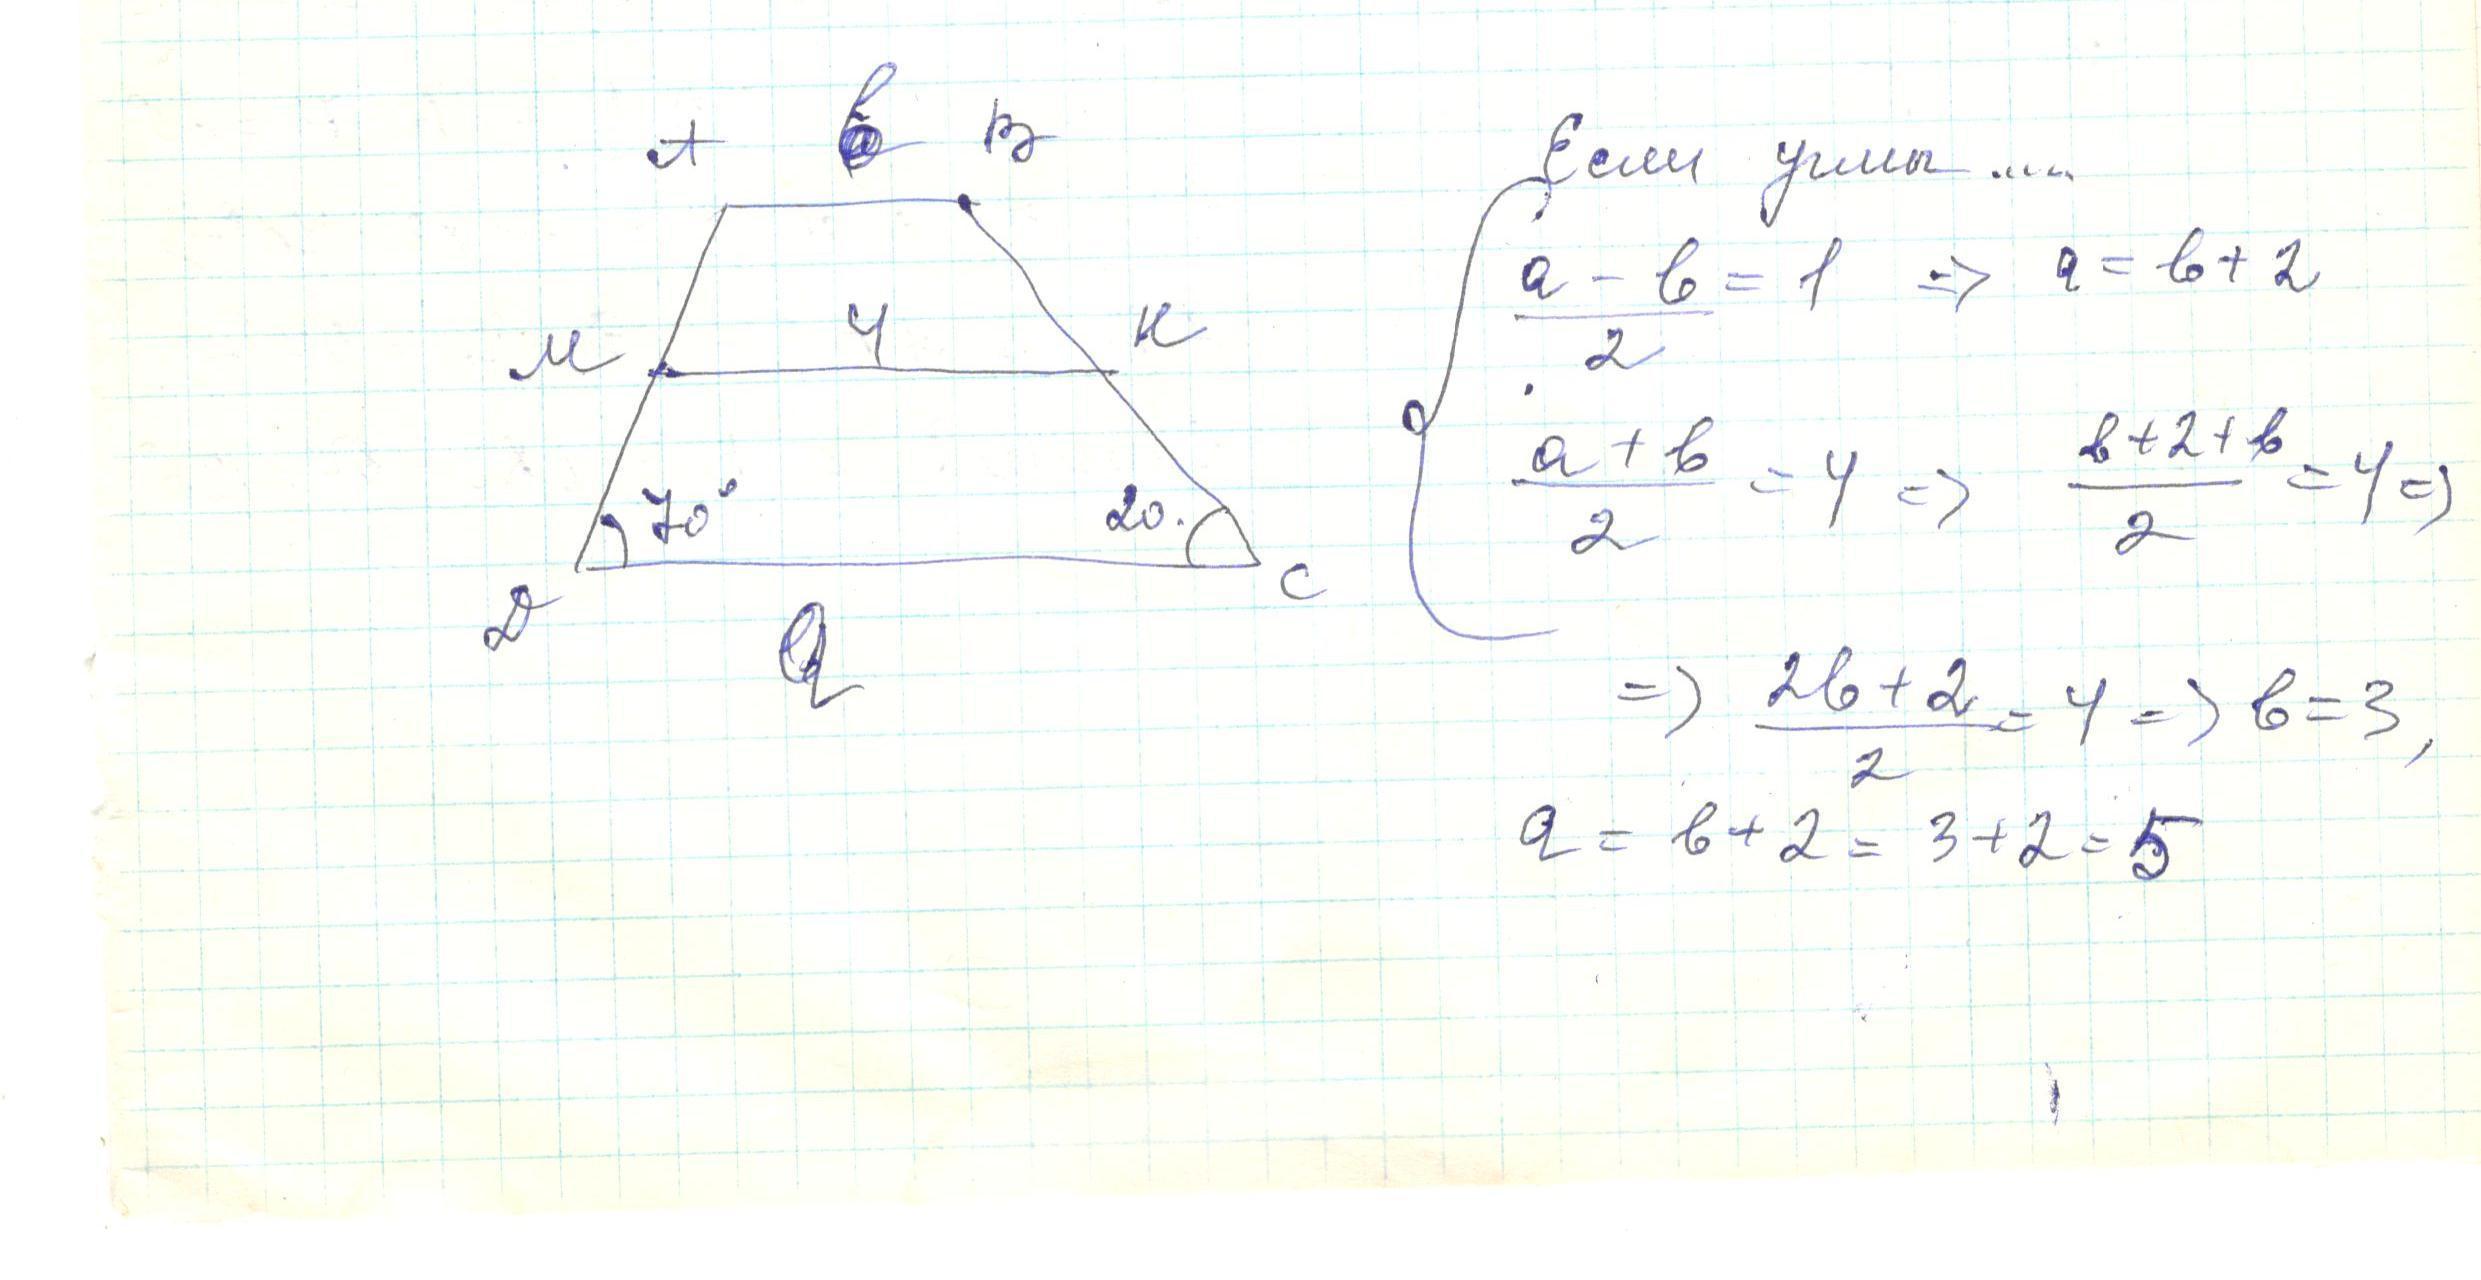 A b B
M 4 K
70° 20.
D a C
Если углы .....
a - b / 2 = 1 => a = b + 2
a + b / 2 = 4 => b+2+b / 2 = 4 =>
=> 2b+2 / 2 = 4 => b = 3,
a = b + 2 = 3 + 2 = 5